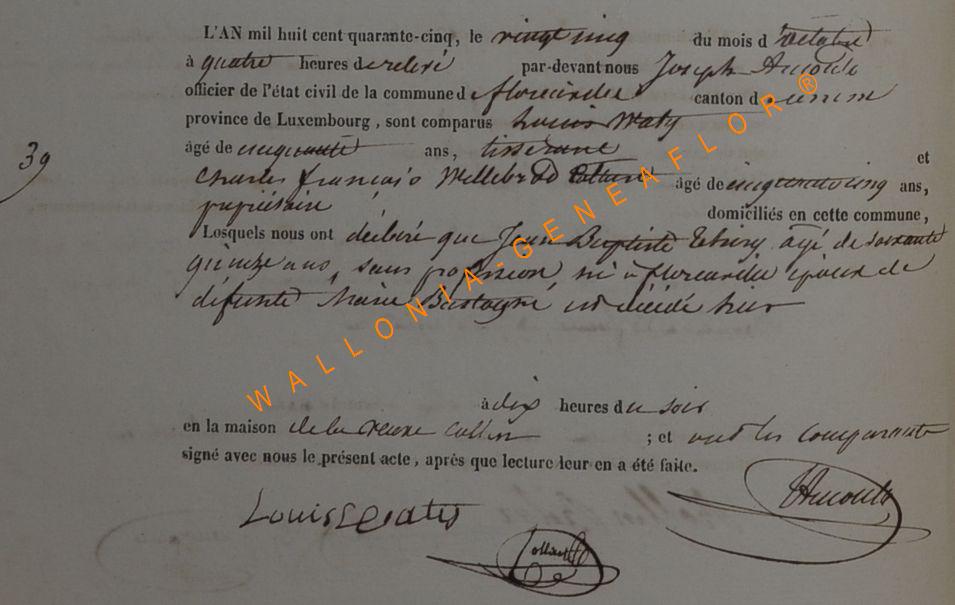 L'AN mil huit cent quarante-cinq, le vingt cinq du mois d'octobre
à quatre heures de relevé par-devant nous Joseph
officier de l'état civil de la commune de florenville canton de
province de Luxembourg, sont comparus Louis Waty
39
âgé de cinquante ans, tisserand et
Charles françois âgé de cinquante cinq ans,
propriétaire domiciliés en cette commune,
Losquels nous ont déclaré que Jean Baptiste âgé de soixante
quinze ans, sans profession, né à florenville époux de
défunte Marie Bastogne, est décédé hier
à dix heures du soir
en la maison de la veuve Collin ; et ont les comparants
signé avec nous le présent acte, après que lecture leur en a été faite.
Louis
WALLONIA-GENEAFLOR®